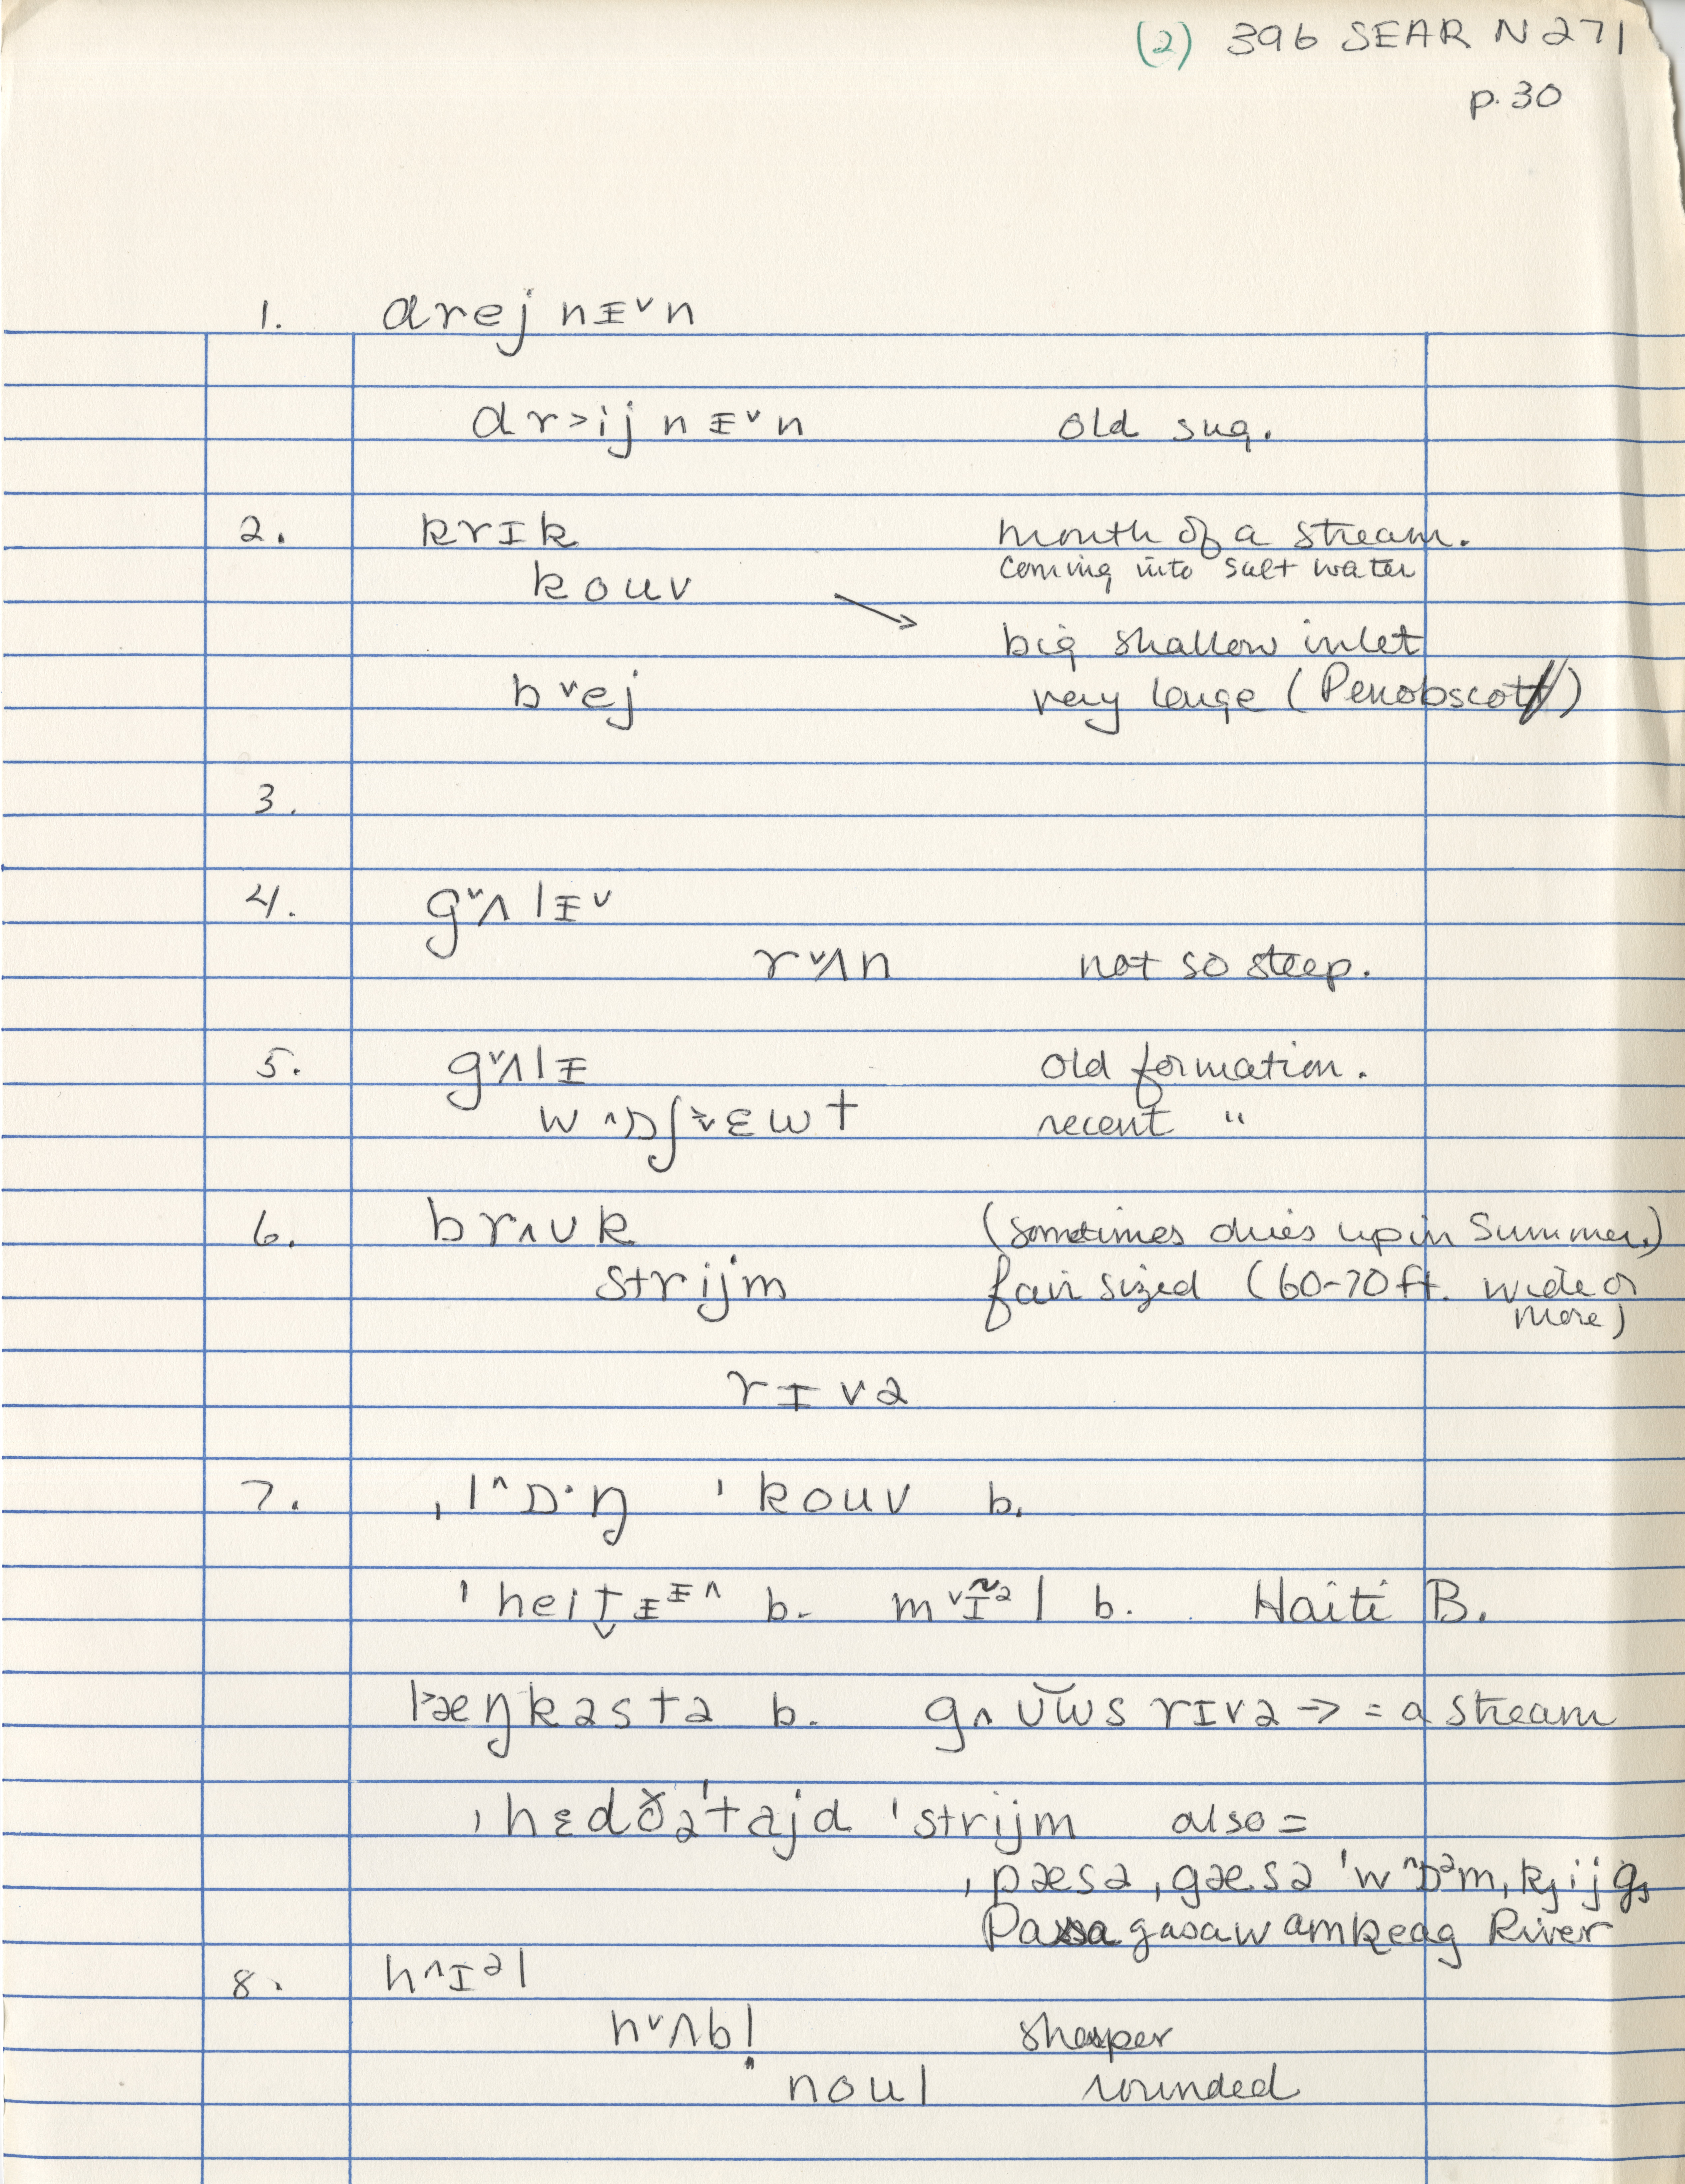 (2) 396 SEAR N271
p. 30
1. drej nᵻ˅n
dr˃ij nᵻ˅n old sug.
2. krɪk mouth of a stream.
coming into salt water
kouv →
big shallow inlet
b˅ej very large (Penobscot)
3.
4. g˅ʌlᵻ˅
r˅ʌn not so steep.
5. g˅ʌlᵻ old formation.
w˄ɒʃ˅˃ɛwt recent "
6. br˄ʊk (sometimes dries up in Summer)
strijm fair sized (60-70 ft. wide or
more)
rɪvə
7. ˌl˄ɒ·ŋ ˈkouv b.
ˈheit̬ᵻᵻ˄ b. m˅ɪ̃əl b. Haiti B.
l˃æŋkəstə b. g˄ʊ͝ws rɪvə → = a stream
ˌhɛdðəˈtajd ˈstrijm also =
ˌpæsəˌgæsəˈw˄ɒəmˌkjijg
Passagasawamkeag River
8. h˄ɪəl
n˅ʌbl̩ sharper
noul rounded